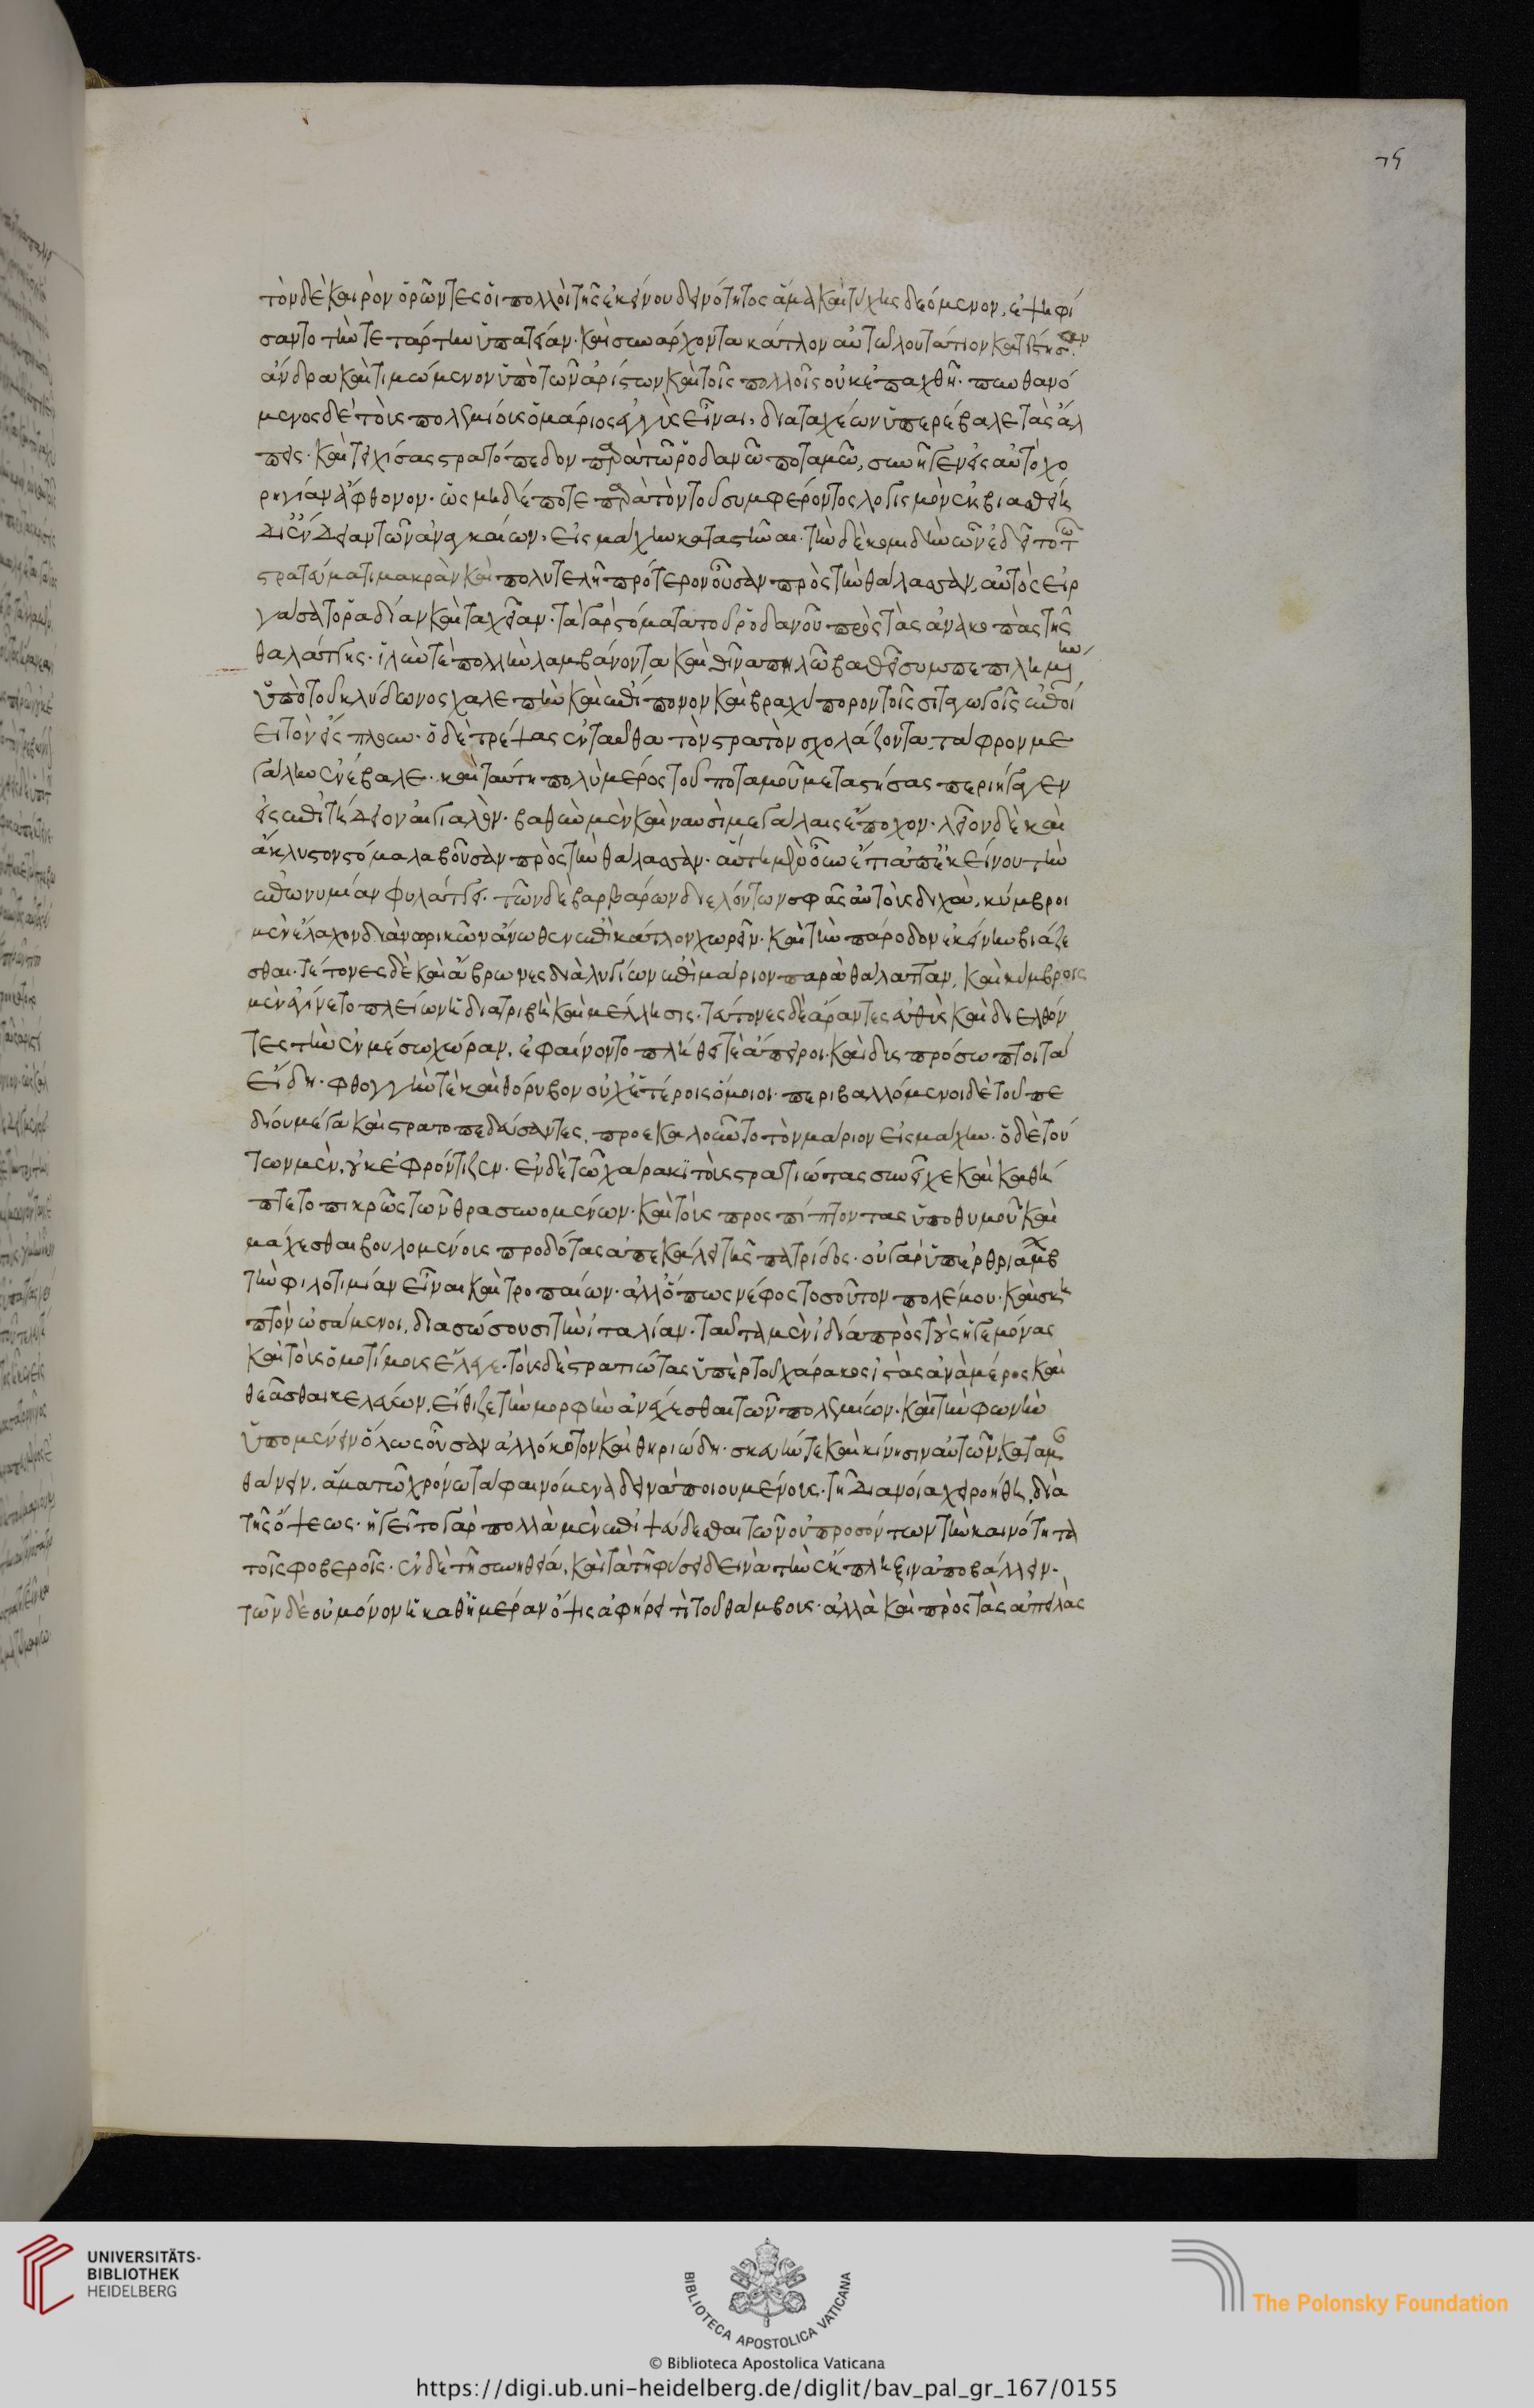 τὸν δὲ καιρὸν ὁρῶντες οἱ πολλοὶ τῆς ἐκείνου δεινότητος ἅμα καὶ τύχης δεόμενον, ἐψηφί
σαντο τὴν τετάρτην ὑπατείαν· καὶ συνάρχοντα κάτλον αὐτῷ λουτάτιον κατέστησαν·
ἄνδρα καὶ τιμώμενον ὑπὸ τῶν ἀρίστων καὶ τοῖς πολλοῖς οὐκ ἐπαχθῆ· πυνθανό
μενος δὲ τοὺς πολεμίους ὁ μάριος ἐγγὺς εἶναι, διαταχέων ὑπερέβαλε τὰς ἄλ
πεις· καὶ τειχίσας στρατόπεδον παρὰ τῷ ῥοδανῷ ποταμῷ, συνῆγεν εἰς αὐτὸ χο
ρηγίαν ἄφθονον· ὡς μηδέποτε παρὰ τὸν τοῦ συμφέροντος λογισμὸν ἐκβιασθείη
δι' ἔνδειαν τῶν ἀναγκαίων, εἰς μάχην καταστῆναι· τὴν δὲ κομιδὴν ὧν ἔδει τῷ
στρατεύματι μακρὰν καὶ πολυτελῆ πρότερον οὖσαν πρὸς τὴν θάλασσαν, αὐτὸς εἰρ
γάσατο ῥαδίαν καὶ ταχεῖαν· τὰ γὰρ στόματα τοῦ ῥοδανοῦ πρὸς τὰς ἀνακοπὰς τῆς
θαλάττης· ἰλύν τε πολλὴν λαμβάνοντα καὶ θῖνα πηλῷ βαθεῖ συμπεπιλημένην
ὑπὸ τοῦ κλύδωνος χαλεπὴν καὶ ἐπίπονον καὶ βραχύπορον τοῖς σιταγωγοῖς ἐποί
ει τὸν εἴσπλουν· ὁ δὲ τρέψας ἐνταῦθα τὸν στρατὸν σχολάζοντα, τάφρον με
γάλην ἐνέβαλε· καὶ ταύτῃ πολὺ μέρος τοῦ ποταμοῦ μεταστήσας περιήγαγεν
εἰς ἐπιτήδειον αἰγιαλὸν· βαθὺν μὲν καὶ ναυσὶ μεγάλαις ἔποχον· λεῖον δὲ καὶ
ἄκλυστον στόμα λαβοῦσαν πρὸς τὴν θάλασσαν· αὕτη μὲν οὖν ἔτι ἀπ' ἐκείνου τὴν
ἐπωνυμίαν φυλάττει· τῶν δὲ βαρβάρων διελόντων σφᾶς αὐτοὺς δίχα, κύμβροι
μὲν ἔλαχον διὰ νωρικῶν ἄνωθεν ἐπὶ κάτλον χωρεῖν· καὶ τὴν πάροδον ἐκείνην βιάζε
σθαι· τεύτονες δὲ καὶ ἄμβρωνες διὰ λυγίων ἐπὶ μάριον παρὰ θάλατταν, καὶ κύμβροις
μὲν ἐγίνετο πλείων ἡ διατριβὴ καὶ μέλλησις· τεύτονες δὲ ἄραντες εὐθὺς καὶ διελθόν
τες τὴν ἐν μέσῳ χώραν, ἐφαίνοντο πλήθει τὲ ἄπειροι· καὶ δυσπρόσωποι τὰ
εἴδη· φθογγήν τε καὶ θόρυβον οὐχ' ἑτέροις ὅμοιοι· περιβαλλόμενοι δὲ τοῦ πε
δίου μέγα καὶ στρατοπεδεύσαντες, προεκαλοῦντο τὸν μάριον εἰς μάχην· ὁ δὲ τού
των μὲν, οὐκ ἐφρόντιζεν· ἐν δὲ τῷ χάρακι τοὺς στρατιώτας συνεῖχε καὶ καθή
πτετο πικρῶς τῶν θρασυνομένων· καὶ τοὺς προσπίπτοντας ὑπὸ θυμοῦ καὶ
μάχεσθαι βουλομένους προδότας ἀπεκάλει τῆς πατρίδος· οὐ γὰρ ὑπὲρ θριάμβων
τὴν φιλοτιμίαν εἶναι καὶ τροπαίων· ἀλλ' ὅπως νέφος τοσοῦτον πολέμου· καὶ σκη
πτὸν ὠσάμενοι, διασώσουσι τὴν ἰταλίαν· ταῦτα μὲν ἰδίᾳ πρὸς τοὺς ἡγεμόνας
καὶ τοὺς ὁμοτίμους ἔλεγε· τοὺς δὲ στρατιώτας ὑπὲρ τοῦ χάρακος ἱστὰς ἀνὰ μέρος καὶ
θεᾶσθαι κελεύων, εἴθιζε τὴν μορφὴν ἀνέχεσθαι τῶν πολεμίων· καὶ τὴν φωνὴν
ὑπομένειν ὅλως οὖσαν ἀλλόκοτον καὶ θηριώδη· σκευήν τε καὶ κίνησιν αὐτῶν καταμαν
θάνειν, ἅμα τῷ χρόνῳ τὰ φαινόμενα δεινὰ ποιουμένους· τῇ διανοίᾳ χειροήθη, διὰ
τῆς ὄψεως· ἡγεῖτο γὰρ πολλὰ μὲν ἐπιψεύδεσθαι τῶν οὐ προσόντων τὴν καινότητα
τοῖς φοβεροῖς· ἐν δὲ τῇ συνηθείᾳ, καὶ τὰ τῇ φύσει δεινὰ τὴν ἔκπληξιν ἀποβάλλειν·
τῶν δὲ οὐ μόνον ἡ καθ' ἡμέραν ὄψις ἀφῄρει τὶ τοῦ θάμβους· ἀλλὰ καὶ πρὸς τὰς ἀπειλὰς
UNIVERSITÄTS-
BIBLIOTHEK
HEIDELBERG
BIBLIOTECA APOSTOLICA VATICANA
The Polonsky Foundation
© Biblioteca Apostolica Vaticana
https://digi.ub.uni-heidelberg.de/diglit/bav_pal_gr_167/0155